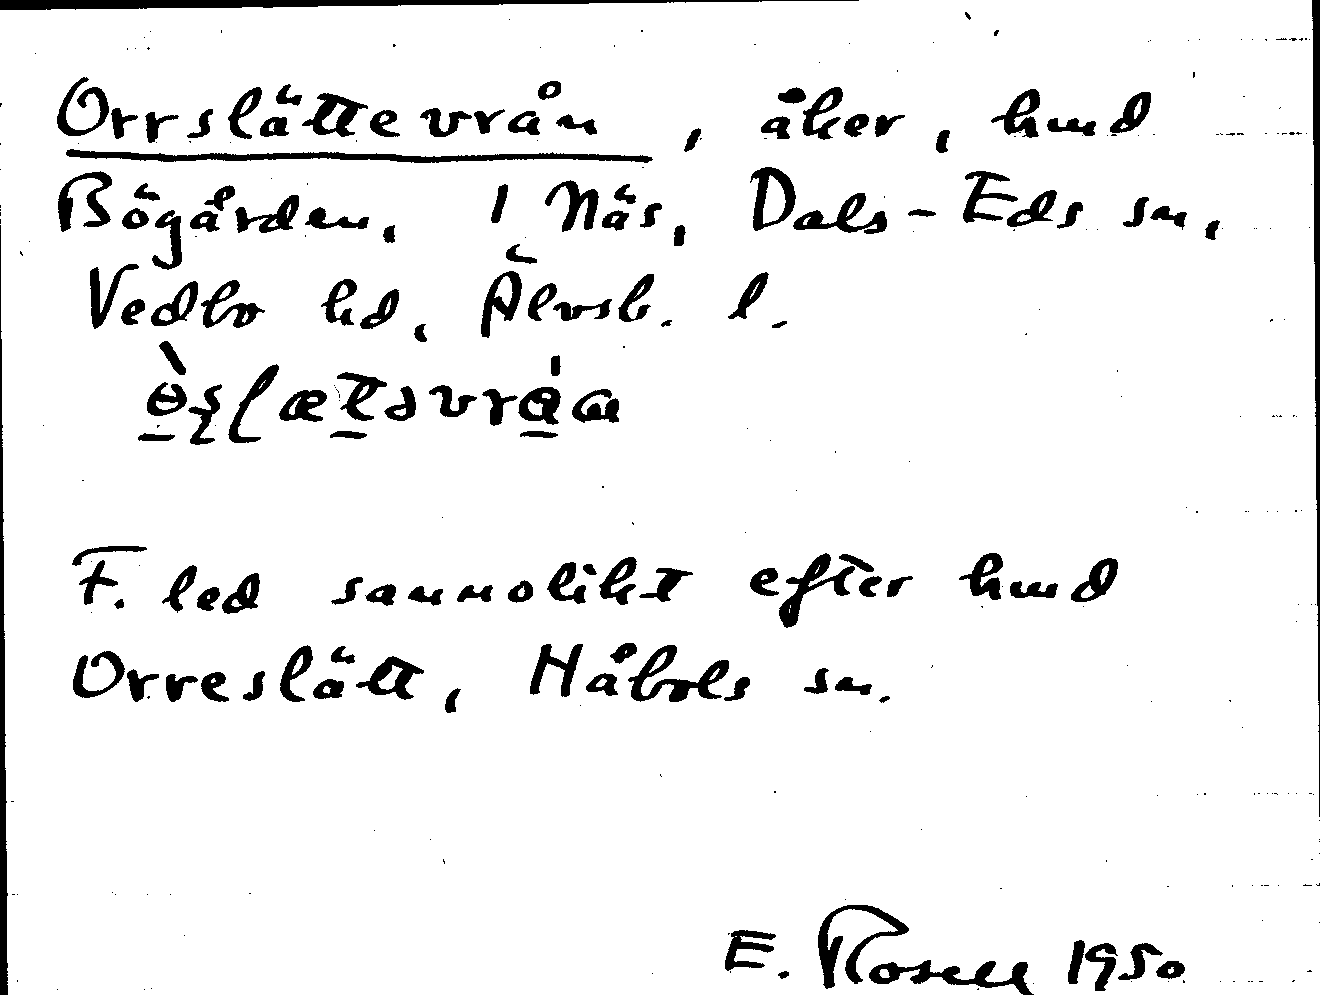 Orrslättevrån, åker, hmd
Bögården, 1 Näs, Dals-Eds sn,
Vedbo hd, Älvsb. l.
F. led sannolikt efter hmd
Orreslätt, Håbols sn.
E. Rosell 1950